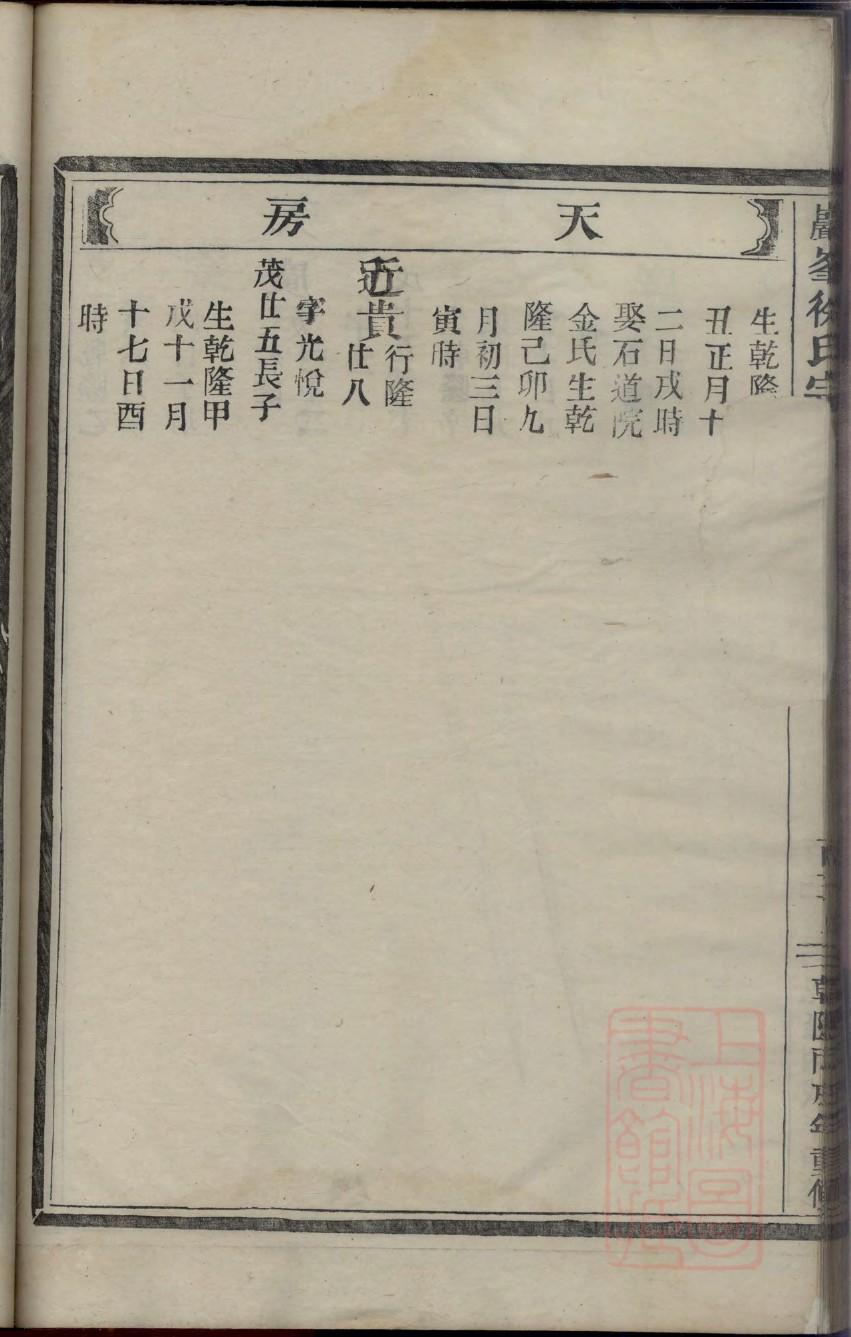 天房
生乾隆
丑正月十
二日戌時
娶石道院
金氏生乾
隆己卯九
月初三日
寅時
近貴行隆
廿八
字光悅
茂廿五長子
生乾隆甲
戌十一月
十七日酉
時
徐氏宗
年重修
上海圖書館藏